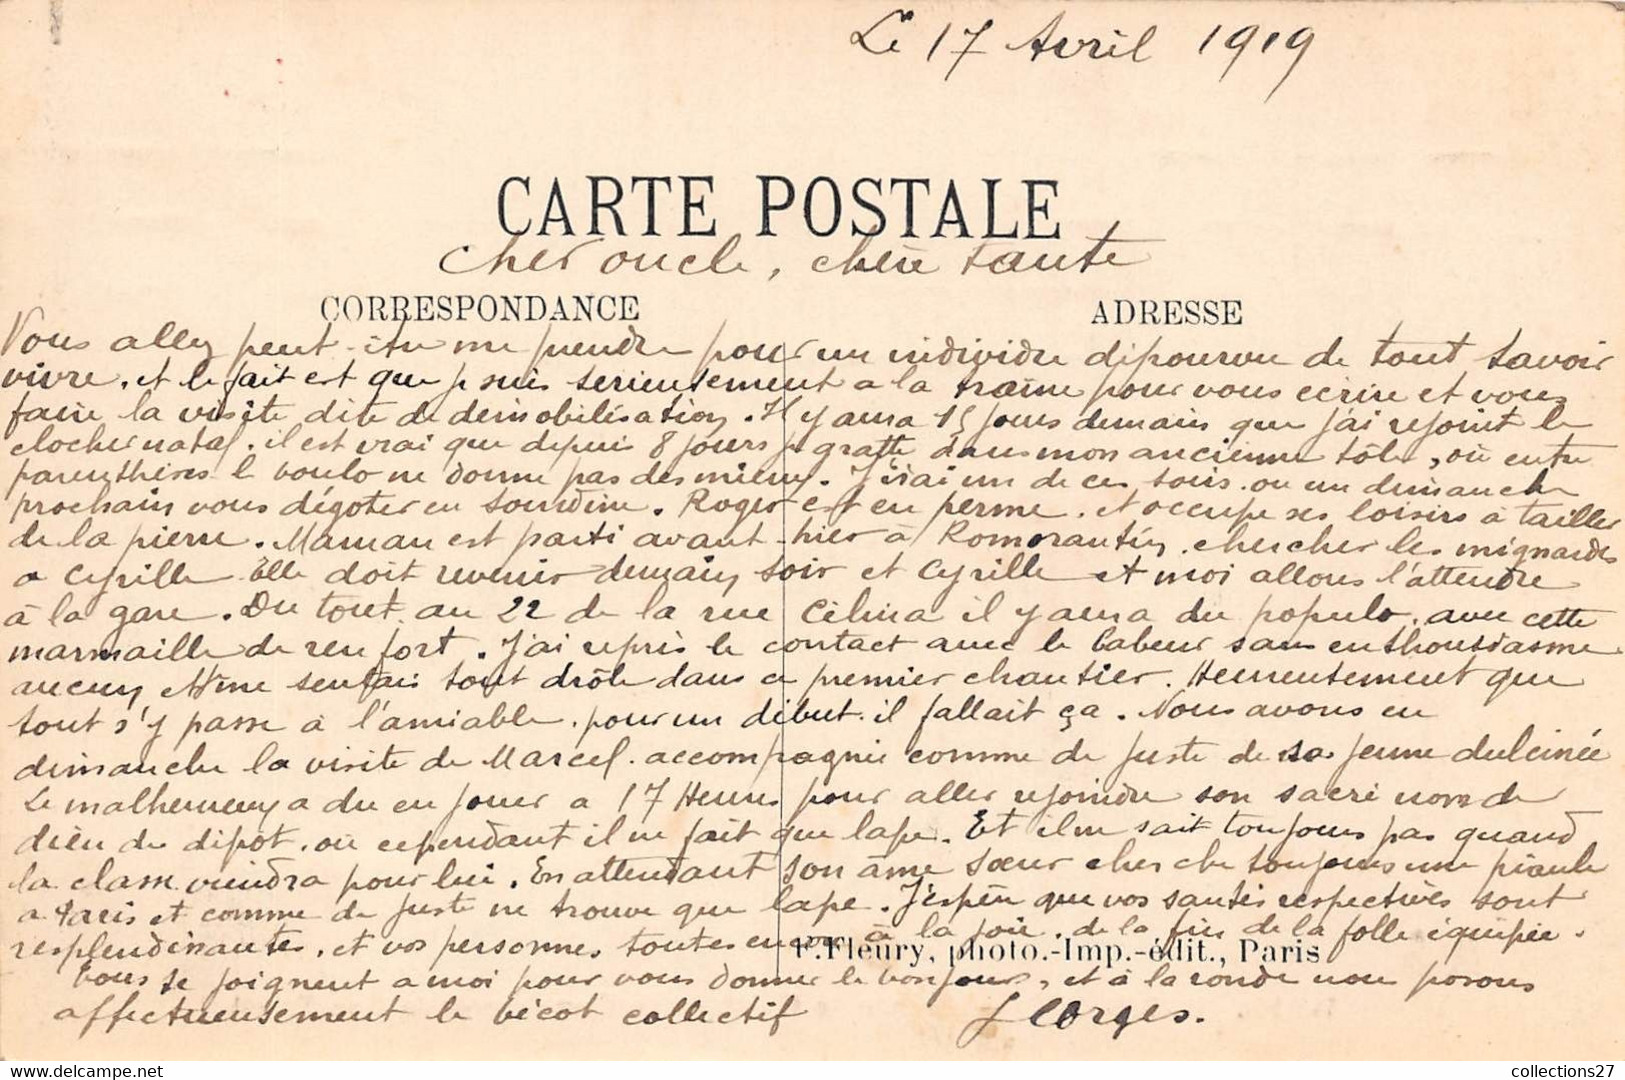 Le 17 Avril 1919
CARTE POSTALE
Cher oncle, chère tante
CORRESPONDANCE
ADRESSE
Vous allez peut-être me prendre pour un individu dépourvu de tout savoir
vivre, et le fait est que je suis serieusement a la traîne pour vous écrire et vous
faire la visite dite de démobilisation. Il y aura 15 jours demain que j'ai rejoint le
clocher natal. il est vrai que depuis 8 jours je gratte dans mon ancienne tôle, où entre
parenthèses le boulo ne donne pas des mieux. J'irai un de ces soirs ou un dimanche
prochain vous dégoter en sourdine. Roger est en perme, et occupe ses loisirs à tailler
de la pierre. Maman est parti avant-hier à Romorantin chercher les mignardes
a Cyrille Elle doit revenir demain soir et Cyrille et moi allons l'attendre
à la gare. Du tout au 22 de la rue Célina il y aura du populo, avec cette
marmaille de renfort. J'ai repris le contact avec le labeur sans enthousiasme
aucun et me sentais tout drôle dans ce premier chantier. Heureusement que
tout s'y passe à l'amiable, pour un début il fallait ça. Nous avons eu
dimanche la visite de Marcel accompagnie comme de juste de sa jeune dulcinée
Le malheureux a du en jouer a 17 Heures pour aller rejoindre son sacré nom de
dieu de dépôt, où cependant il ne fait que lape. Et il ne sait toujours pas quand
la classe viendra pour lui. En attendant son âme sœur cherche toujours une piaule
a Paris et comme de juste ne trouve que lape. J'espère que vos santés respectives sont
resplendissantes, et vos personnes toutes encore à la joie, de la fin de la folle équipée.
F. Fleury, photo.-Imp.-édit., Paris
Tous se joignent a moi pour vous donner le bonjour, et à la ronde nous posons
affectueusement le bécot collectif
Georges.
collections27
https://www.delcampe.net